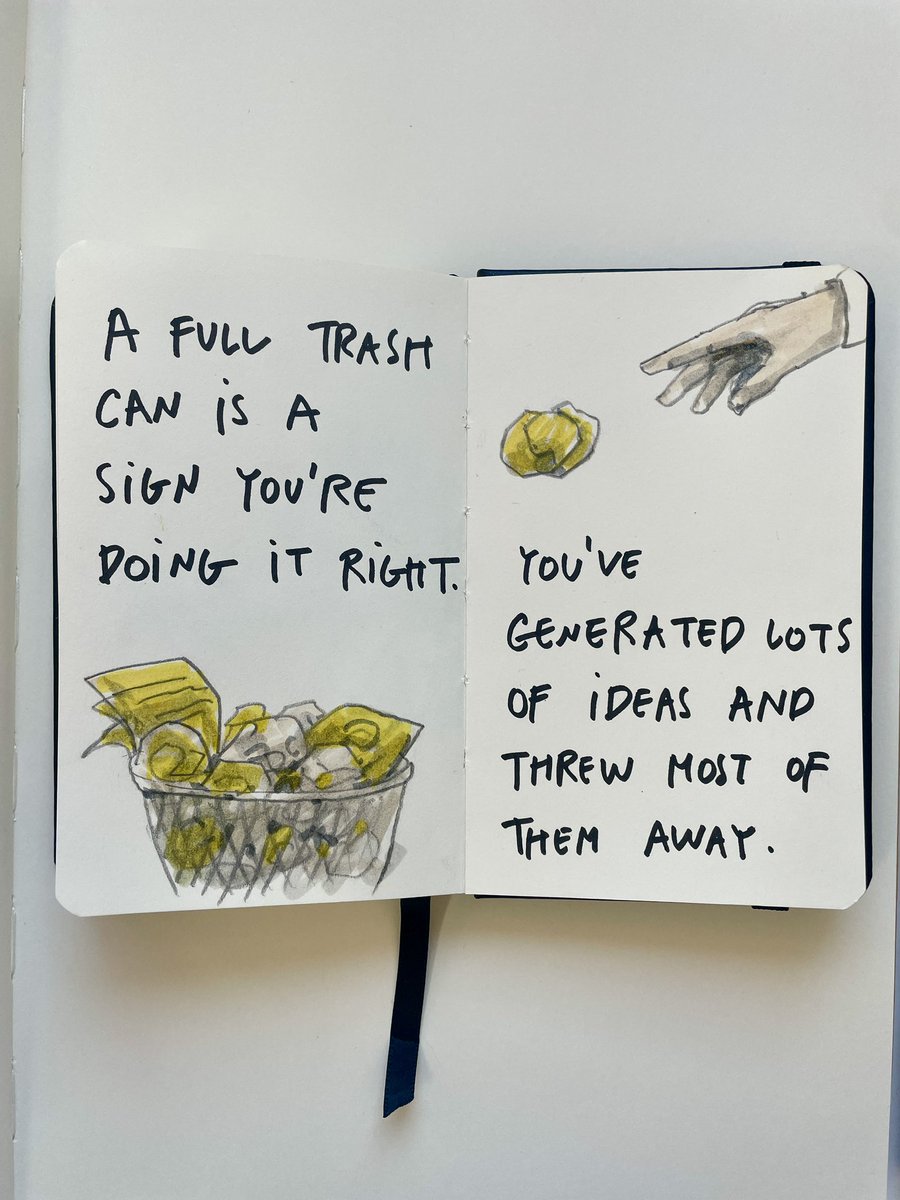 A FULL TRASH
CAN iS A
SiGN YOU'RE
DOiNG iT RiGHT.
YOU'VE
GENERATED LOTS
OF iDEAS AND
THREW MOST OF
THEM AWAY.